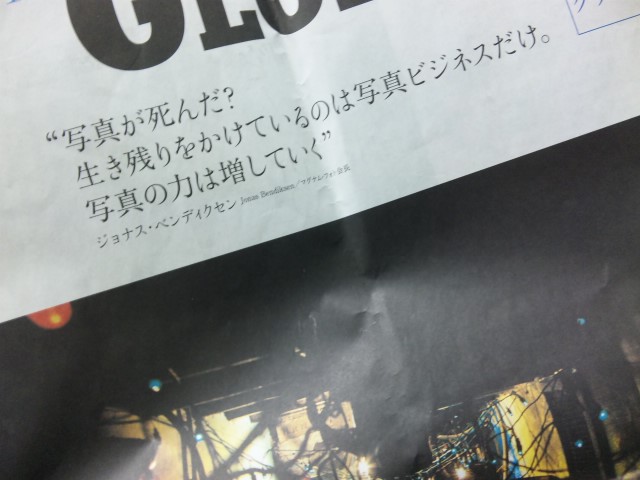 GLOB
“写真が死んだ?
生き残りをかけているのは写真ビジネスだけ。
写真の力は増していく”
ジョナス・ベンディクセン Jonas Bendiksen／マグナム・フォト会長